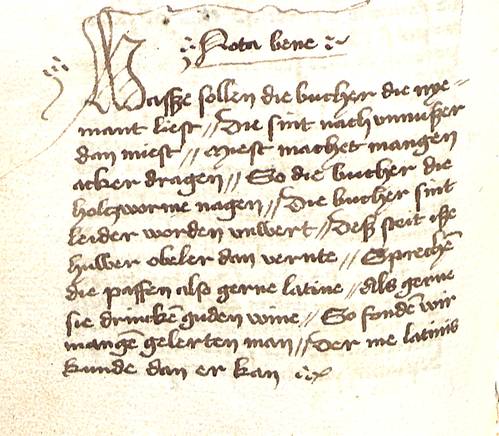 Nota bene
Wasße sollen die bucher die nye-
mant liest // Die sint nach vnnußer
dan miest // Miest machet mangen
acker dragen // So die bucher die
holczworme nagen // Die bucher sint
leider worden vnwert // Deß steit iße
huwer obeler dan vernte // Sprechē
die paffen also gerne latine // Als gerne
sie drinckē guden wine // So fonden wir
mangē gelerten man // Der me latinis
kunde dan er kan